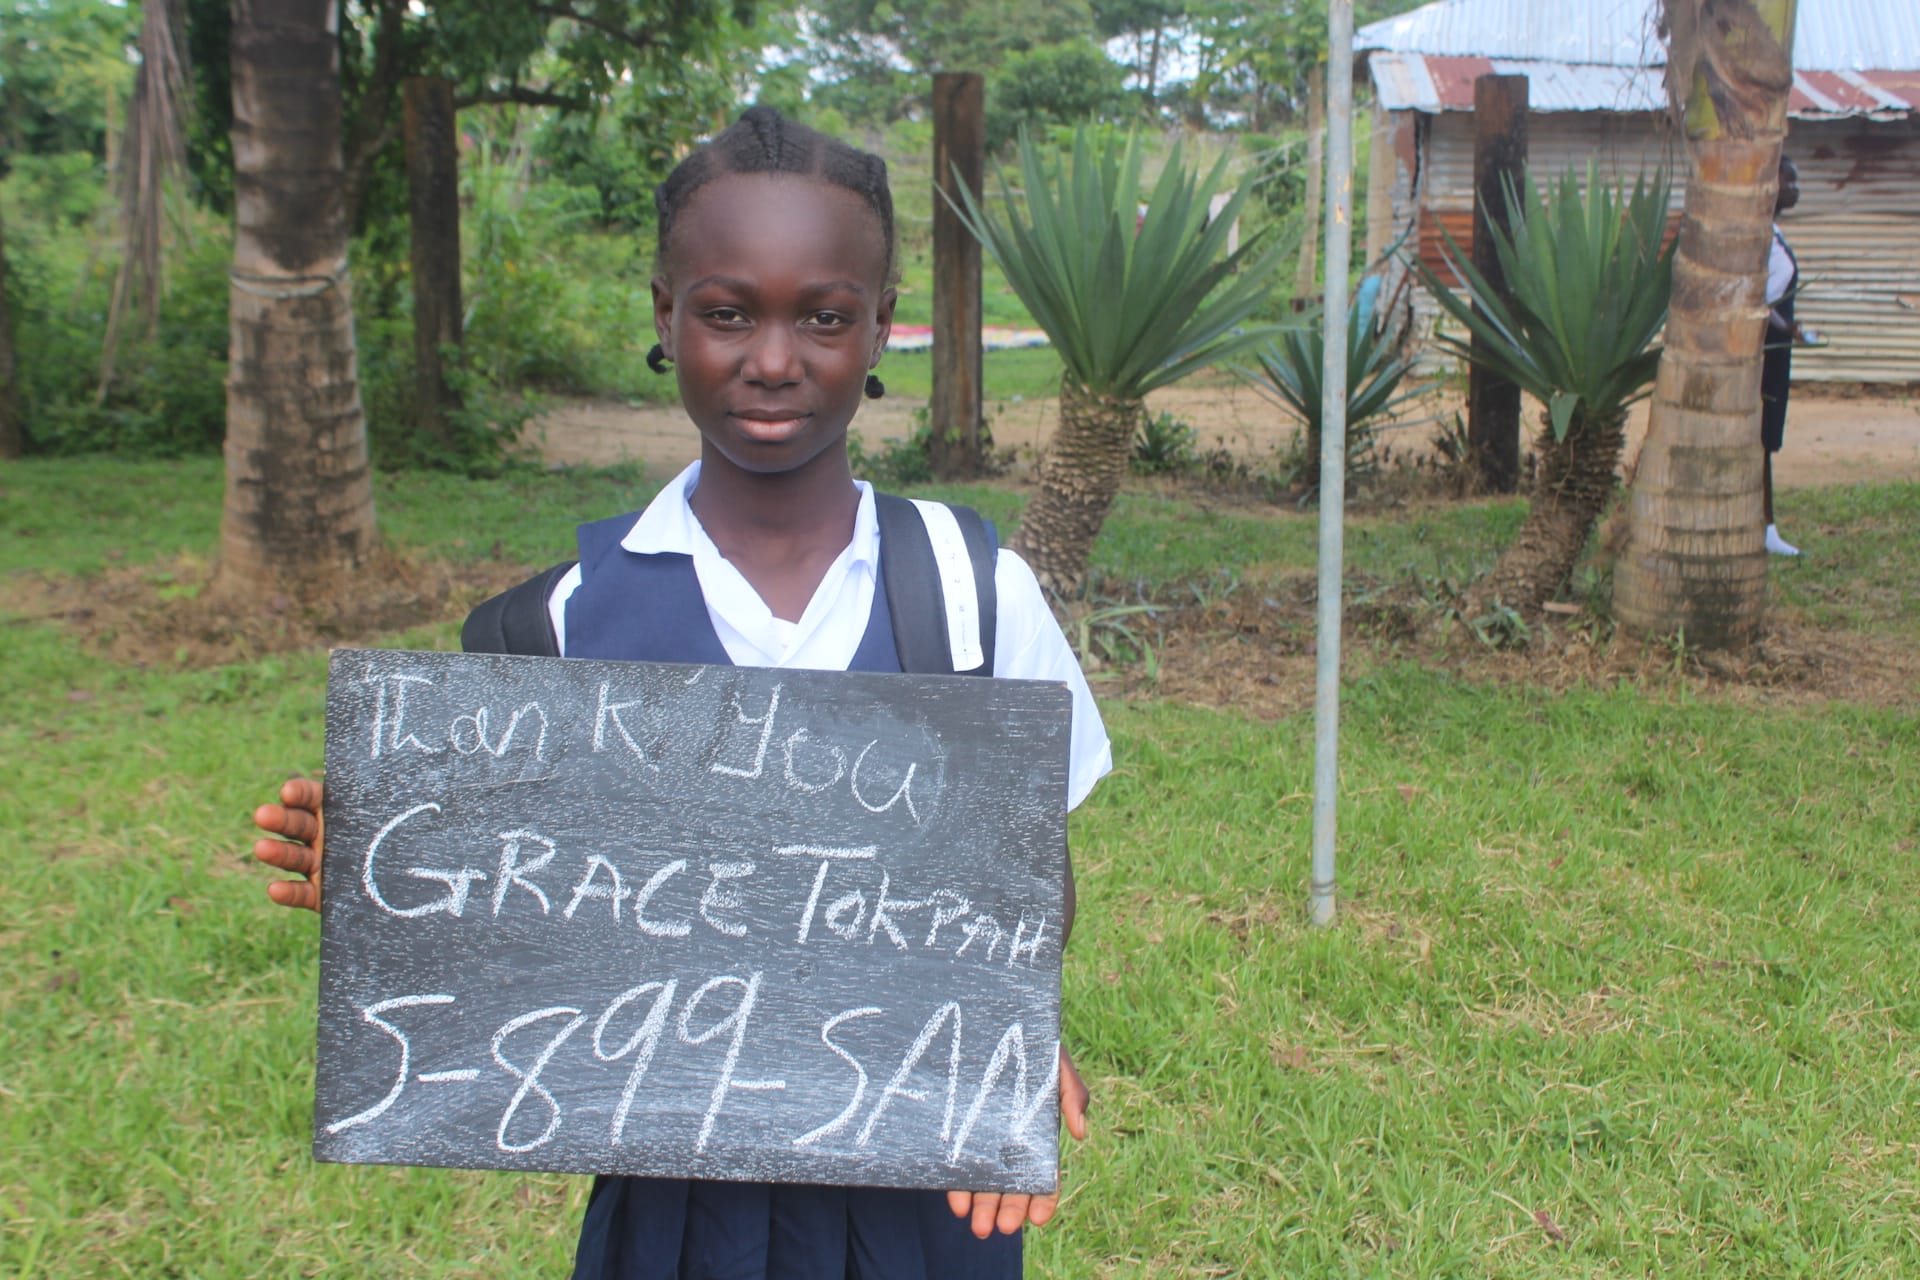 Thank you
GRACE TOKPAH
S-899-SAN